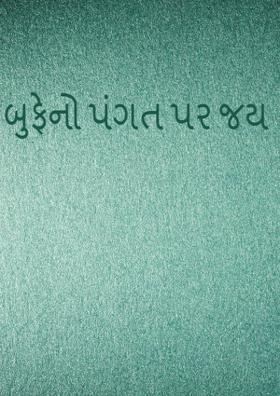 બુફેનો પંગત પર જય